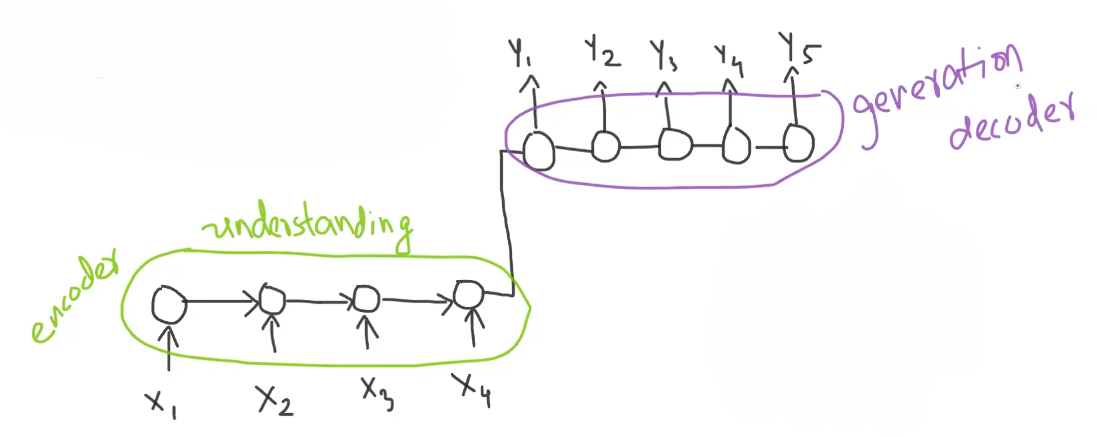 Y1 Y2 Y3 Y4 Y5
generation
decoder
understanding
encoder
X1 X2 X3 X4